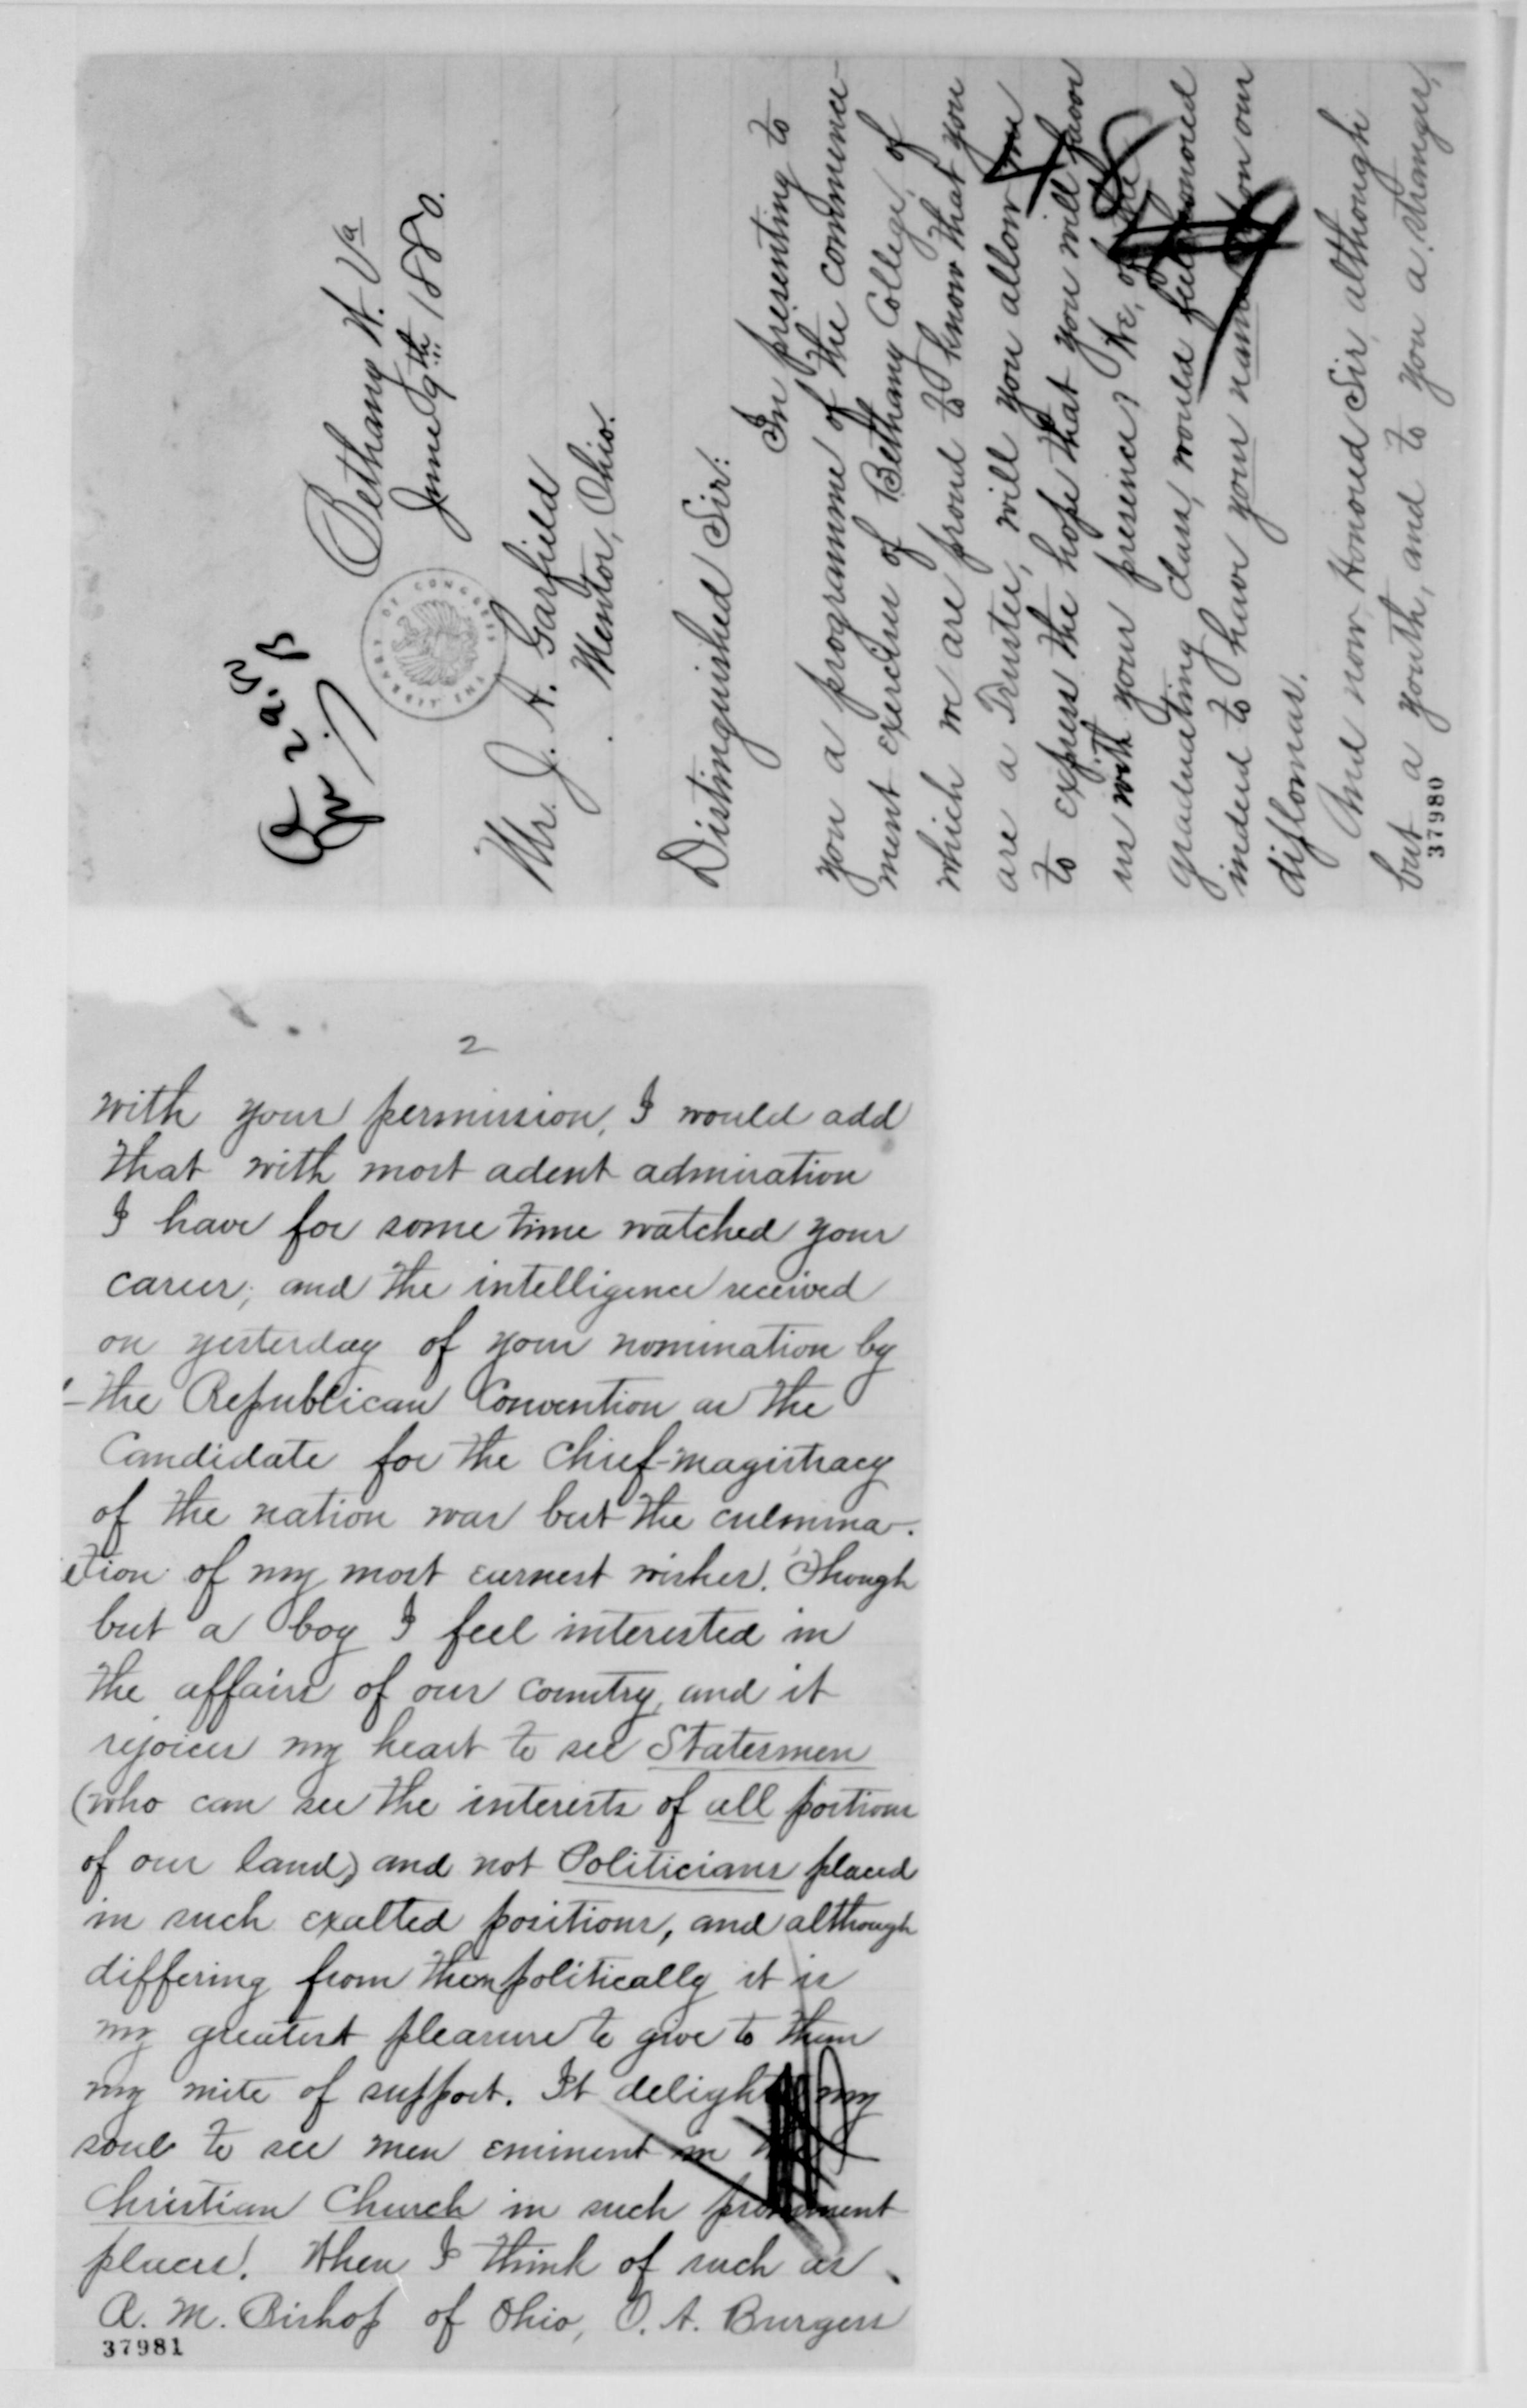 Bethany W. Va
June 9th 1880.
THE LIBRARY OF CONGRESS
Mr. J. A. Garfield
Mentor, Ohio.
Distinguished Sir:
In presenting to
you a programme of the commence-
ment exercises of Bethany College, of
which we are proud to know that you
are a Trustee, will you allow me
to express the hope that you will favor
us with your presence? We, of the
graduating class, would feel honored
indeed to have your name upon our
diplomas.
And now, Honored Sir, although
but a youth, and to you a stranger,
37980
2
with your permission, I would add
that with most adent admiration
I have for some time watched your
career; and the intelligence received
on yesterday of your nomination by
the Republican Convention as the
Candidate for the Chief-magistracy
of the nation was but the culmina-
tion of my most earnest wishes. Though
but a boy I feel interested in
the affairs of our country, and it
rejoices my heart to see Statesmen
(who can see the interests of all portions
of our land) and not Politicians placed
in such exalted positions, and although
differing from them politically it is
my greatest pleasure to give to them
my mite of support. It delights my
soul to see men eminent in the
Christian Church in such prominent
places. When I think of such as
R. M. Bishop of Ohio, O. A. Burgess
37981